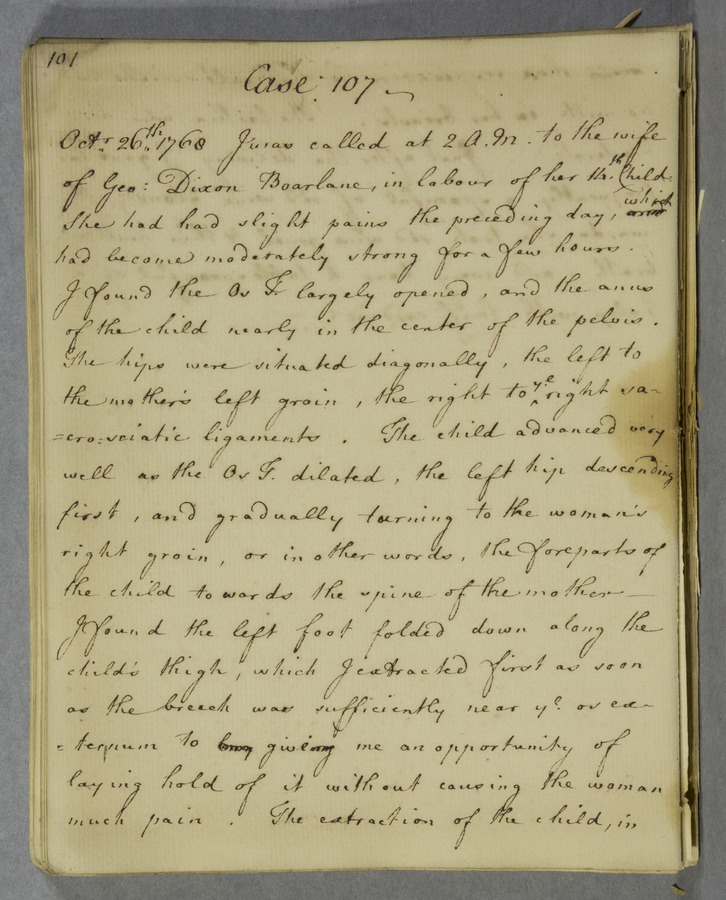 101
Case 107
Octr. 26th. 1768 I was called at 2 A.M. to the wife
of Geo: Dixon Boarlane, in labour of her 4th. Child.
She had had slight pains the preceding day, which
had become moderately strong for a few hours.
I found the Os T. largely opened, and the anus
of the child nearly in the center of the pelvis.
The hips were situated diagonally, the left to
the mother's left groin, the right to ye right sa-
=cro-sciatic ligaments. The child advanced very
well as the Os T. dilated, the left hip descending
first, and gradually turning to the woman's
right groin, or in other words, the foreparts of
the child towards the spine of the mother—
I found the left foot folded down along the
child's thigh, which I extracted first as soon
as the breech was sufficiently near ye. os ex-
=ternum to giving me an opportunity of
laying hold of it without causing the woman
much pain. The extraction of the child, in